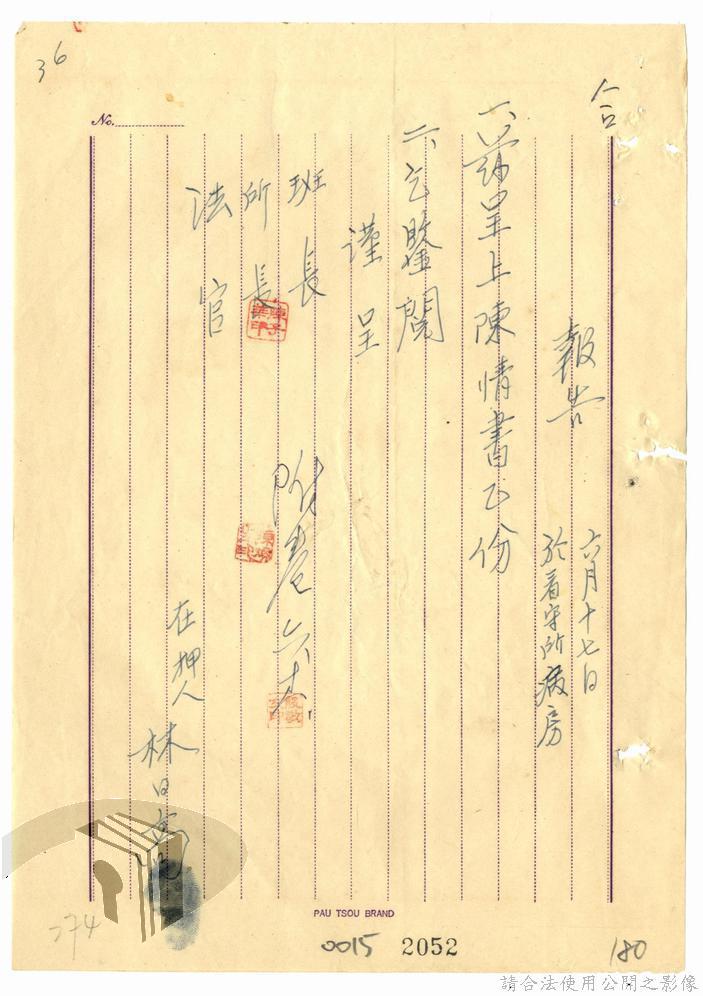 36
No.
合
報告
六月十七日
於看守所病房
一、茲呈上陳情書乙份
二、乞鑒閱
謹呈
班長
所長
法官
附卷
在押人
林日高
PAU TSOU BRAND
0015 2052
274
180
請合法使用公開之影像